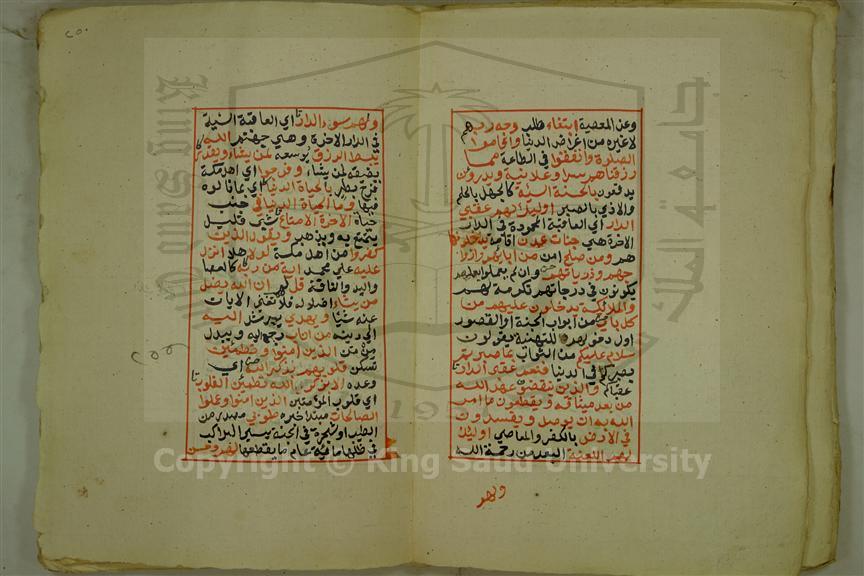 وعن المعصية ابتغاء طلب وجه ربهم
لا غيره من اغراض الدنيا واقاموا
الصلوة وانفقوا في الطاعة مما
رزقناهم سرا وعلانية ويدرون
يدفعون بالحسنة السيئة كالجهل بالحلم
والاذي بالصبر اوليك لهم عقبي
الدار اي العاقبة المحمودة في الدار
الاخرة هي جنات عدن اقامة يدخلونها
هم ومن صلح امن من ابايهم وازوا
جهم وذرياتهم وان لم يعملوا بعملهم
يكونون في درجاتهم تكرمة لهم
والملايكة يدخلون عليهم من
كل باب من ابواب الجنة او القصور
اول دخولهم للتهنية يقولون
سلام عليكم من الثواب بما صبرتم
بصبركم في الدنيا فنعم عقبي الدار
عقباكم والذين ينقضون عهد الله
من بعد ميثاقه ويقطعون ما امر
الله به ان يوصل ويفسدون
في الارض بالكفر والمعاصي اوليك
لهم اللعنة البعد من رحمة الله
ولهم
٢٥٠
ولهم سوء الدار اي العاقبة السيئة
في الدار الاخرة وهي جهنم الله
يبسط الرزق يوسعه لمن يشاء ويقدر
يضيقه لمن يشاء وفرحوا اي اهل مكة
فرح بطر بالحياة الدنيا اي بما نالوه
فيها وما الحياة الدنيا في جنب
حياة الاخرة الا متاع شي قليل
يتمتع به ويذهب ويقول الذين
كفروا من اهل مكة لولا هلا انزل
عليه علي محمد اية من ربه كالعصا
واليد والناقة قل لهم ان الله يضل
من يشاء اضلاله فلا تغني الايات
عنه شيا ويهدي يرشد اليه
الي دينه من اناب رجع اليه ويبدل
من من الذين امنوا وتطمئن
تسكن قلوبهم بذكر الله اي
وعده الا بذكر الله تطمئن القلوب
اي قلوب المؤمنين الذين امنوا وعملوا
الصالحات مبتدا خبره طوبي مصدر من
الطيب او شجرة في الجنة يسير الراكب
في ظلها ماية عام ما يقطعها لهم وحسن
Copyright © King Saud University
جامعة الملك
King Saud
1957